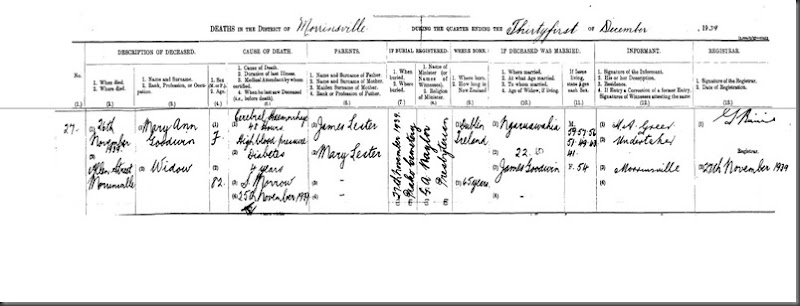 DEATHS IN THE DISTRICT OF Morrinsville DURING THE QUARTER ENDING THE Thirtyfirst OF December 1939
DESCRIPTION OF DECEASED. CAUSE OF DEATH. PARENTS. IF BURIAL REGISTERED. WHERE BORN. IF DECEASED WAS MARRIED. INFORMANT. REGISTRAR.
No.
1. When died.
2. Where died.
1. Name and Surname.
2. Rank, Profession, or Occupation.
1. Sex (M. or F.)
2. Age.
1. Cause of Death.
2. Duration of last Illness.
3. Medical Attendant by whom certified.
4. When he last saw Deceased (i.e., before death).
1. Name and Surname of Father.
2. Name and Surname of Mother.
3. Maiden Surname of Mother.
4. Rank or Profession of Father.
1. When buried.
2. Where buried.
1. Name of Minister (or Name of Witness).
2. Religion of Minister.
1. Where born.
2. How long in New Zealand
1. Where married.
2. At what Age married.
3. To whom married.
4. Age of Widow, if living.
If Issue living, state Ages each Sex.
1. Signature of the Informant.
2. His or her Description.
3. Residence.
4. If Entry a Correction of a former Entry, Signatures of Witnesses attesting the same.
1. Signature of the Registrar.
2. Date of Registration.
(1.) (2.) (3.) (4.) (5.) (6.) (7.) (8.) (9.) (10.) (11.) (12.) (13.)
27
(1) 26th November 1939.
(2) Allen Street Morrinsville
(1) Mary Ann Goodwin
(2) Widow
(1) F
(2) 82.
(1) Cerebral Haemorrhage
48 hours
High blood pressure
Diabetes
(2) 4 years
(3) S. Morrow
(4) 25th November 1939
(1) James Lester
(2) Mary Lester
(3) -
(4) -
(1) 27th November 1939.
(2) Piako Cemetery
(1) G. A. Naylor
(2) Presbyterian
(1) Dublin Ireland
(2) 65 years.
(1) Ngaruawahia
(2) 22.
(3) James Goodwin
(4) -
M. 59. 57. 56
51. 49. 41.
F. 54
(1)
(2) Undertaker
(3) Morrinsville
(4)
(1)
Registrar.
(2) 27th November 1939